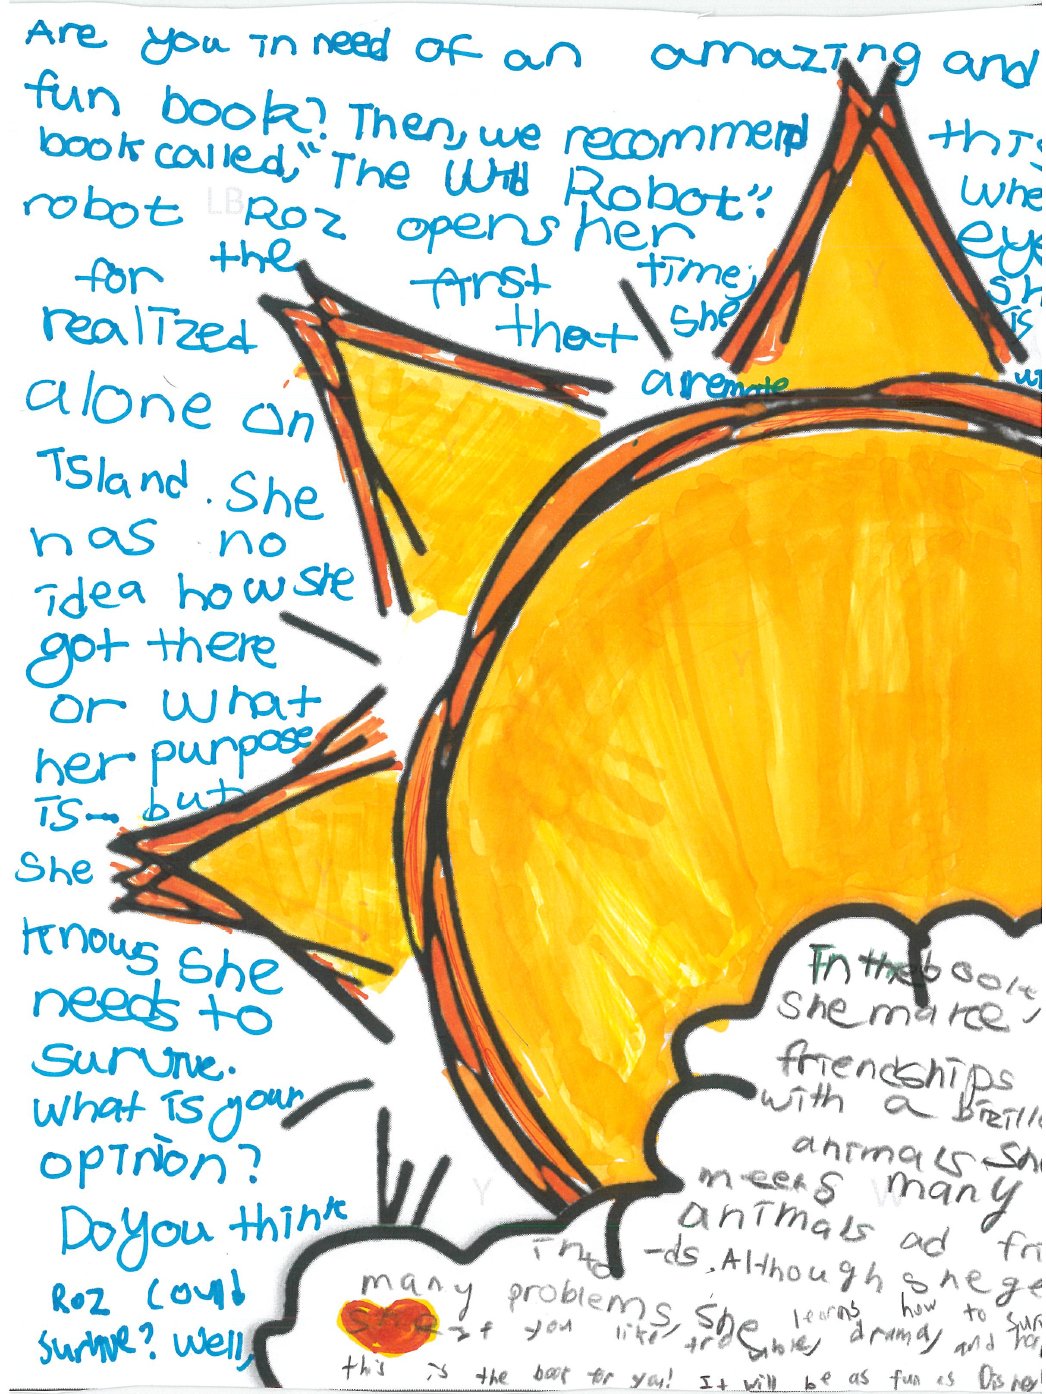 Are you in need of an amazing and
fun book? Then, we recommend this
book called, "The Wild Robot". Whe
robot Roz opens her eye
for the first time, sh
realized that she is
alone on a remote
Island. She
has no
idea how she
got there
or what
her purpose
is— but
She
knows she
needs to
survive.
What is your
opinion?
Do you think
Roz could
survive? Well,
In the book,
she make
friendships
with a bizill
animals. She
meets many
animals ad fri
-ds. Although she ge
into
many problems, she learns how to sur
If you like trouble, drama, and
this is the book for you! It will be as fun as Disney